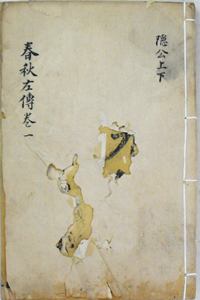 隱公上下
春秋左傳卷一